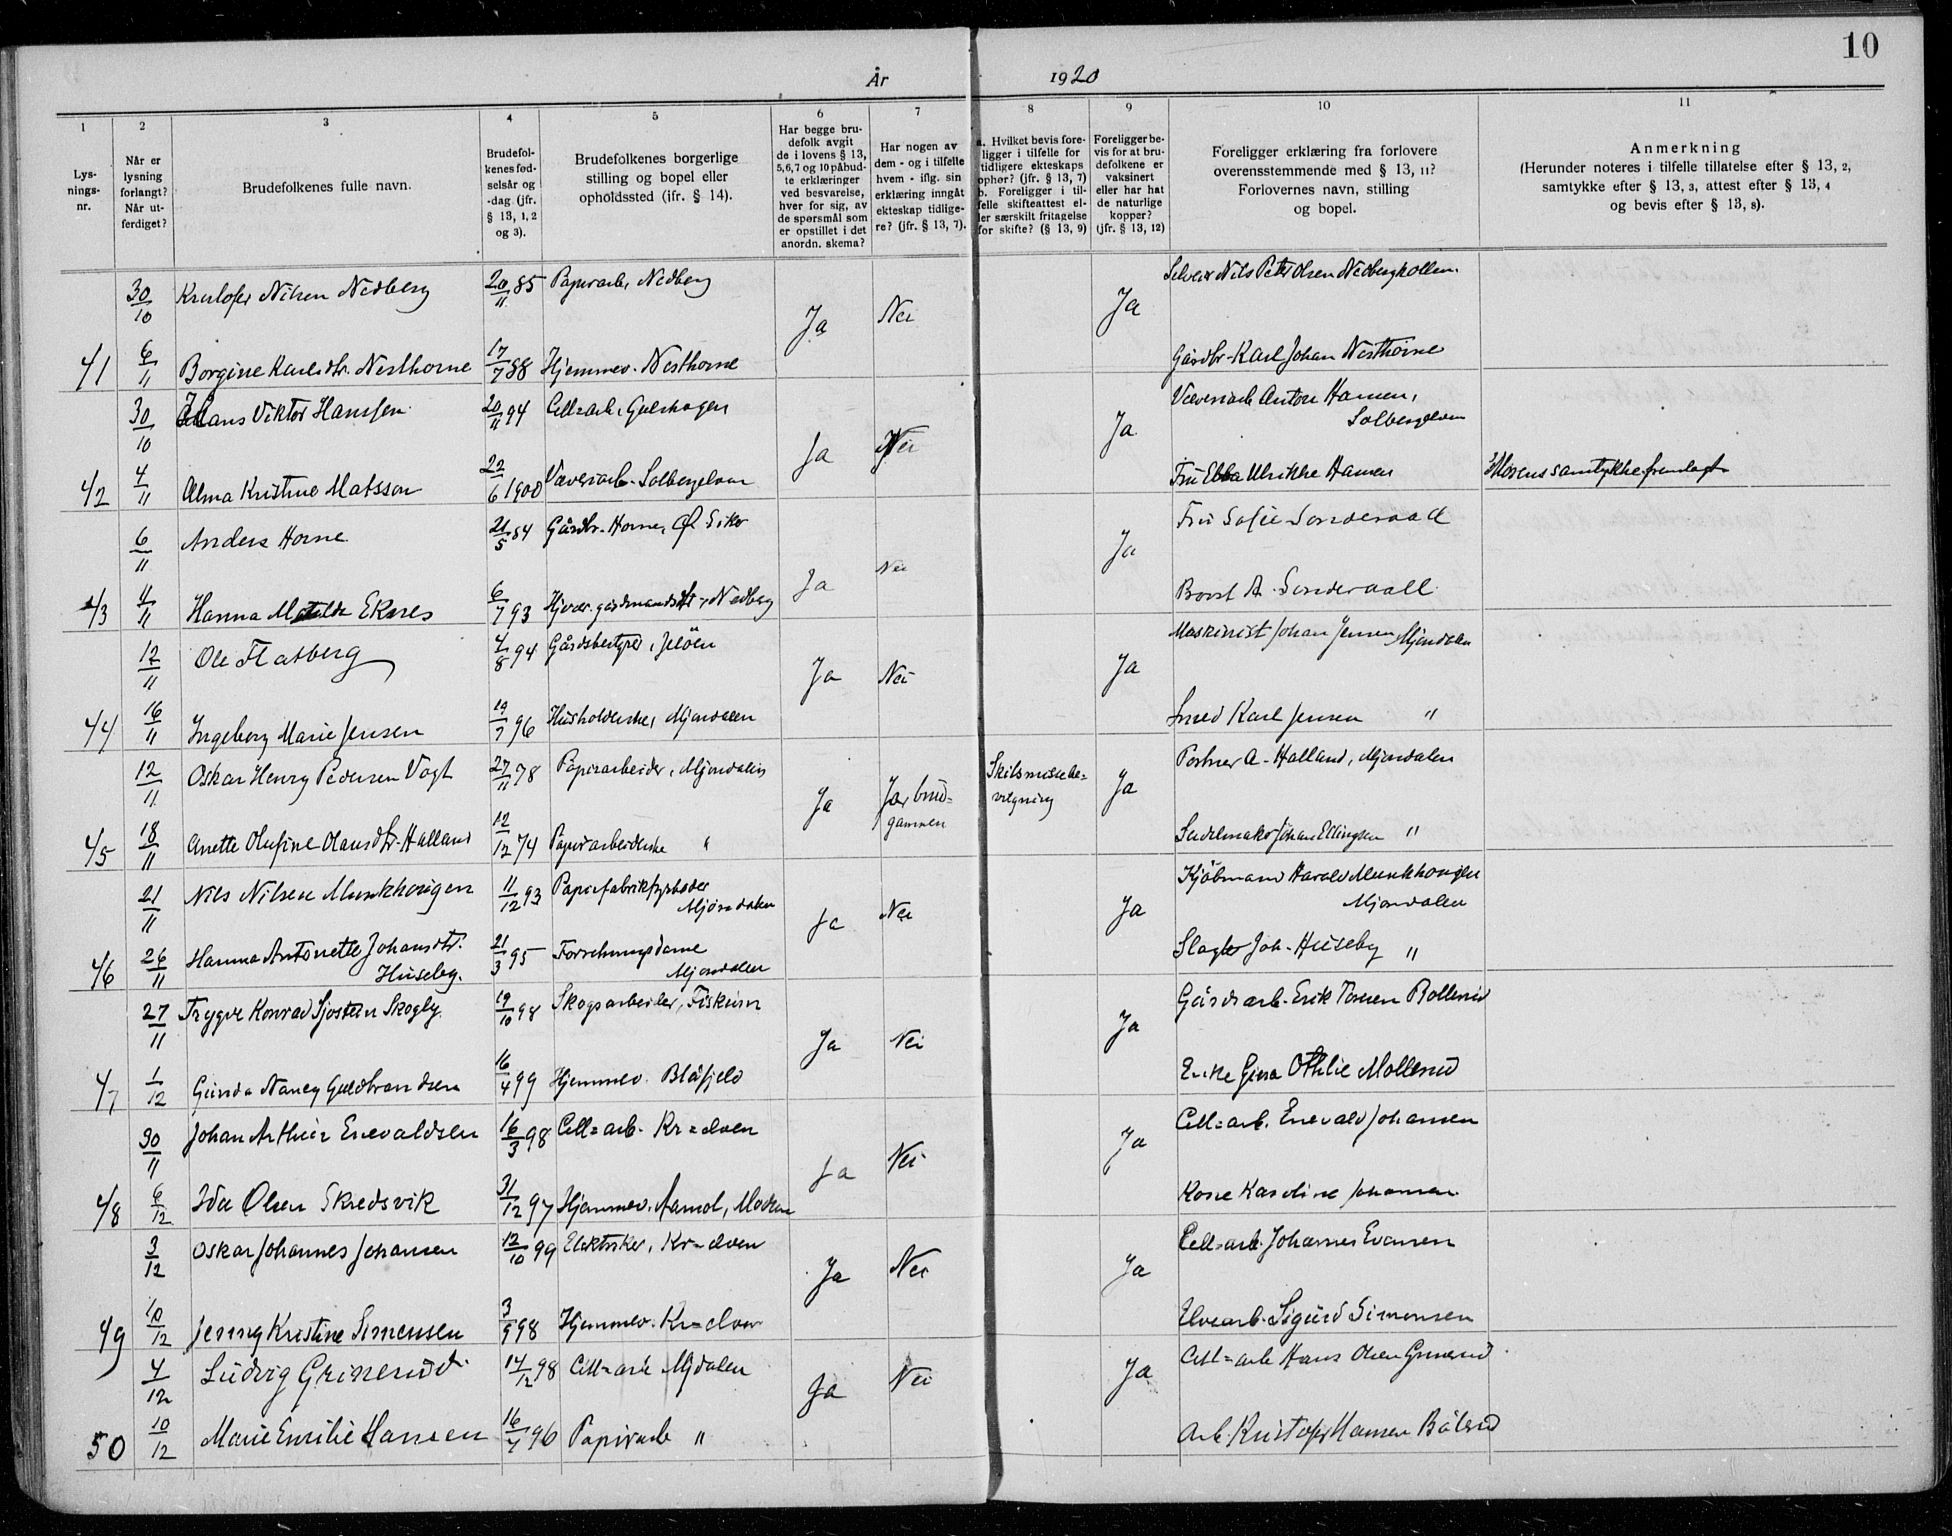 10
År 1920
1 2 3 4 5 6 7 8 9 10 11
Lys-
nings-
nr.
Når er
lysning
forlangt?
Når ut-
ferdiget?
Brudefolkenes fulle navn.
Brudefol-
kenes fød-
selsår og
-dag (jfr.
§ 13, 1, 2
og 3).
Brudefolkenes borgerlige
stilling og bopel eller
opholdssted (ifr. § 14).
Har begge bru-
defolk avgit
de i lovens § 13,
5,6,7 og 10 påbud-
te erklæringer
ved besvarelse,
hver for sig, av
de spørsmål som
er opstillet i det
anordn. skema?
Har nogen av
dem - og i tilfelle
hvem - iflg. sin
erklæring inngåt
ekteskap tidlige-
re? (jfr. § 13, 7).
a. Hvilket bevis fore-
ligger i tilfelle for
tidligere ekteskaps
ophør? (jfr. § 13, 7)
b. Foreligger i til-
felle skifteattest el-
ler særskilt fritagelse
for skifte? (§ 13, 9)
Foreligger be-
vis for at bru-
defolkene er
vaksinert
eller har hat
de naturlige
kopper?
(jfr. § 13, 12)
Foreligger erklæring fra forlovere
overensstemmende med § 13, 11?
Forlovernes navn, stilling
og bopel.
Anmerkning
(Herunder noteres i tilfelle tillatelse efter § 13, 2,
samtykke efter § 13, 3, attest efter § 13, 4
og bevis efter § 13, 8).
30/10 Kristofer Nilsen Nedberg 20/11 85 Papirarb., Nedberg Ja Nei Ja Selveier Nils Peter Olsen Nedbergkollen.
41 6/11 Borgine Karlsdtr. Nesthorne 17/7 88 Hjemmev. Nesthorne Gårdbr. Karl Johan Nesthorne
30/10 Hans Viktor Hanssen 20/11 94 Cell=arb., Gulskogen Ja Nei Ja Væveriarb Anton Hansen,
Solbergelven
42 4/11 Alma Kristine Matsson 22/6 1900 Væveriarb. Solbergelven Fru Ebba Ulrikke Hansen Morens samtykke fremlagt
6/11 Anders Horne 21/5 84 Gårdbr. Horne, Øv. Eiker Ja Nei Ja Fru Sofie Sønderaal
43 11/11 Hanna Matilde Eknes 6/7 93 Nedberg A. Sønderaall
12/11 Ole Flatberg 4/8 94 Gårdsbestyrer, Jeløen Ja Nei Ja Maskinist Johan Jensen Mjøndalen
44 16/11 Ingeborg Marie Jensen 19/7 96 Husholderske, Mjøndalen Smed Karl Jensen "
12/11 Oskar Henry Pedersen Vogt 27/11 78 Papirarbeider, Mjøndalen Ja Ja, brud=
gommen Skilsmissebe=
vilgning Ja Portner A. Halland, Mjøndalen
45 18/11 Anette Olufine Olausdtr. Halland 12/12 74 Papirarbeiderske " Sadelmaker Johan Ellingsen "
21/11 Nils Nilsen Munkhaugen 11/12 93 Papirfabrikfyrbøder
Mjøndalen Ja Nei Ja Kjøbmand Harald Munkhaugen
Mjøndalen
46 26/11 Hanna Antonette Johansdtr.
Huseby. 21/3 95 Forretningsdame
Mjøndalen Slagter Joh. Huseby "
27/11 Trygve Konrad Sjøstein Skogly 19/10 98 Skogsarbeider, Fiskum Ja Nei Ja Gårdsarb. Erik Bollerud
47 1/12 Gunda Nancy Guldbrandsen 16/4 99 Hjemmev. Blåfjeld Enke Gina Othilie Mollerud
30/11 Johan Arthur Enevaldsen 16/3 98 Cell=arb. Kr=elven Ja Nei Ja Cell=arb. Enevald Johansen
48 6/12 Ida Olsen Skredsvik 31/12 97 Hjemmev. Aamot, Modum Kone Karoline Johansen
3/12 Oskar Johannes Johansen 12/10 99 Elektriker, Kr=elven Ja Nei Ja Cell=arb. Johannes Evensen
49 10/12 Jenny Kristine Simensen 3/9 98 Hjemmev. Kr=elven Elvearb. Sigurd Simensen
4/12 Ludvig Grinerud 14/12 98 Cell=arb Mjdalen Ja Nei Ja Cell=arb Hans Olsen Grinerud
50 10/12 Marie Emilie Hansen 16/4 96 Papirarb " Arb. Kristofer Hansen Bålsrud